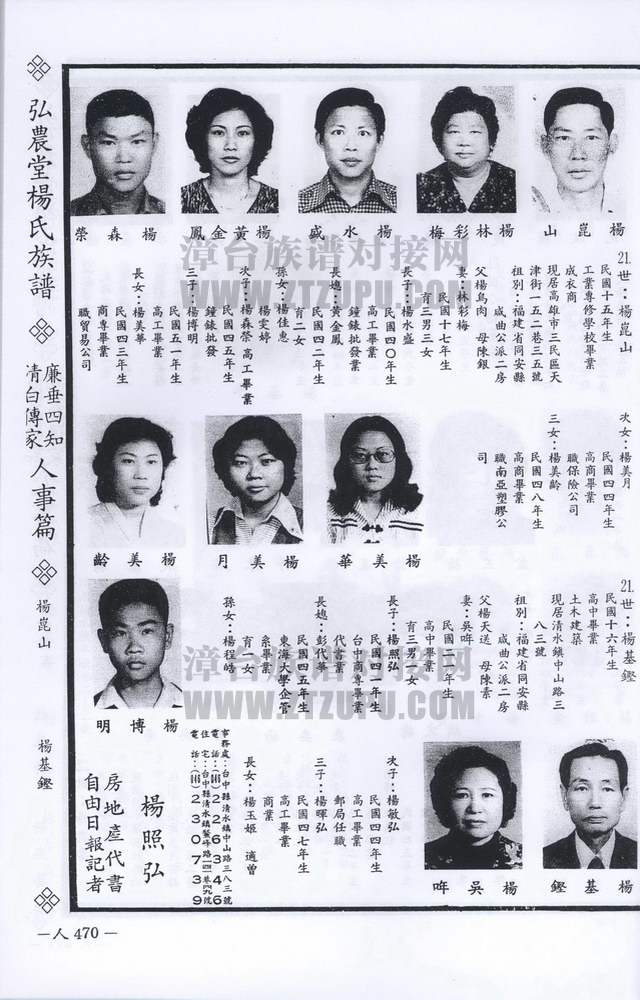 弘農堂楊氏族譜
廉垂四知
清白傳家
人事篇
楊崑山
楊基鏗
楊崑山
楊林彩梅
楊水盛
楊黃金鳳
楊森榮
21.世：楊崑山
民國十五年生
工業專修學校畢業
成衣商
現居高雄市三民區天
津街一五二巷三五號
祖別：福建省同安縣
咸曲公派二房
父楊烏肉 母陳銀
妻：林彩梅
民國十七年生
育三男三女
長子：楊水盛
民國四〇年生
高工畢業
鐘錶批發業
長媳：黃金鳳
民國四二年生
育二女
孫女：楊佳惠
楊雯婷
次子：楊森榮 高工畢業
民國四五年生
鐘錶批發
三子：楊博明
民國五一年生
高工畢業
長女：楊美華
民國四三年生
商專畢業
職貿易公司
次女：楊美月
民國四四年生
高商畢業
職保險公司
三女：楊美齡
民國四八年生
高商畢業
職南亞塑膠公
司
楊美華
楊美月
楊美齡
楊博明
21.世：楊基鏗
民國十六年生
高中畢業
土木建築
現居清水鎮中山路三
八三號
祖別：福建省同安縣
咸曲公派二房
父楊天送 母陳素
妻：吳㖕
民國二一年生
高中畢業
育三男一女
長子：楊照弘
民國四二年生
台中商專畢業
代書業
長媳：彭代華
民國四五年生
東海大學企管
系畢業
育一女
孫女：楊程皓
次子：楊敏弘
民國四四年生
高工畢業
郵局任職
三子：楊暉弘
民國四七年生
高工畢業
商業
長女：楊玉姬 適曾
楊基鏗
楊吳㖕
事務處：台中縣清水鎮中山路三八三號
電話：(046)226346
住宅：台中縣清水鎮鰲峰路一四一巷四九號
電話：(046)230739
楊照弘
房地產代書
自由日報記者
—人 470—
漳台族谱对接网
WWW.ZTZUPU.COM
漳台族谱对接网
WWW.ZTZUPU.COM